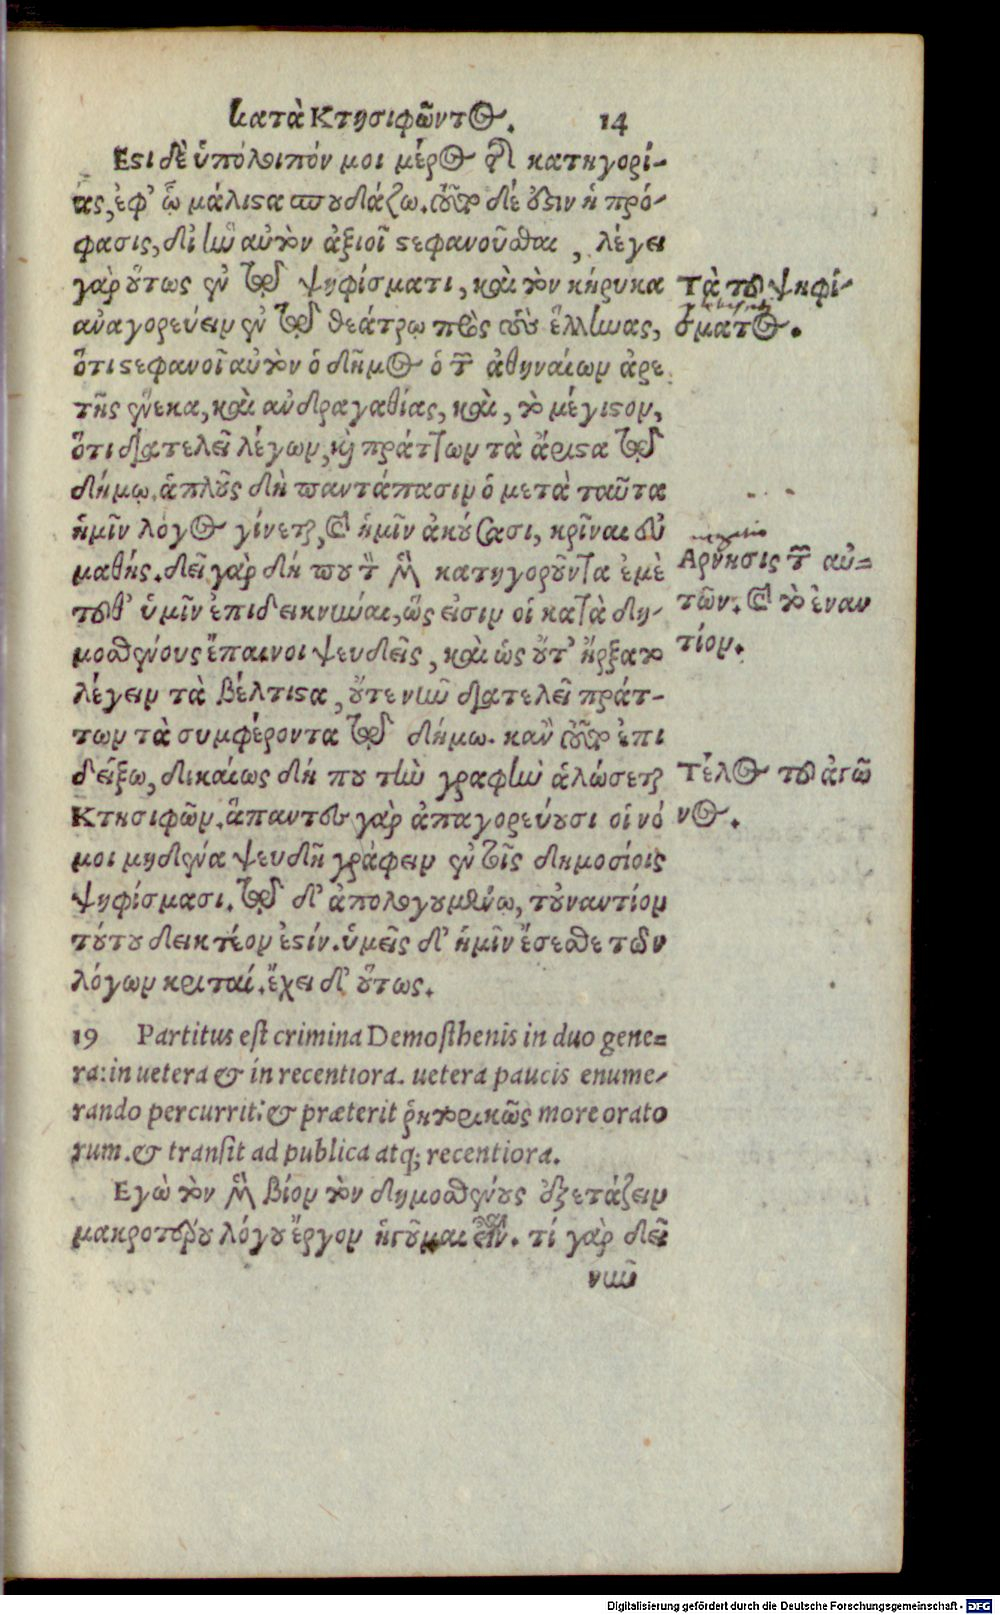 κατὰ Κτησιφῶντος. 14
Ἔστι δὲ ὑπόλοιπόν μοι μέρος τῆς κατηγορί-
ας, ἐφ' ᾧ μάλιστα σπουδάζω. αὕτη δέ ἐστιν ἡ πρό-
φασις, δι' ἣν αὐτὸν ἀξιοῖ στεφανοῦσθαι, λέγει
γὰρ οὕτως ἐν τῷ ψηφίσματι, καὶ τὸν κήρυκα
ἀναγορεύειν ἐν τῷ θεάτρῳ πρὸς τοὺς ἕλληνας,
ὅτι στεφανοῖ αὐτὸν ὁ δῆμος ὁ τῶν ἀθηναίων ἀρε
τῆς ἕνεκα, καὶ ἀνδραγαθίας, καὶ, τὸ μέγιστον,
ὅτι διατελεῖ λέγων, καὶ πράττων τὰ ἄριστα τῷ
δήμῳ. ἁπλοῦς δὴ παντάπασιν ὁ μετὰ ταῦτα
ἡμῖν λόγος γίνεται, καὶ ὑμῖν ἀκούσασι, κρῖναι εὐ
μαθής. δεῖ γὰρ δή που τὸν μὲν κατηγοροῦντα ἐμὲ
τοῦθ' ὑμῖν ἐπιδεικνύναι, ὥς εἰσιν οἱ κατὰ δη-
μοσθένους ἔπαινοι ψευδεῖς, καὶ ὡς οὔτ' ἤρξατο
λέγειν τὰ βέλτιστα, οὔτε νῦν διατελεῖ πράτ-
των τὰ συμφέροντα τῷ δήμῳ. κἂν τοῦτο ἐπι
δείξω, δικαίως δή που τὴν γραφὴν ἁλώσεται
Κτησιφῶν. ἅπαντες γὰρ ἀπαγορεύουσι οἱ νό
μοι μηδένα ψευδῆ γράφειν ἐν τοῖς δημοσίοις
ψηφίσμασι. τῷ δ' ἀπολογουμένῳ, τοὐναντίον
τούτου δεικτέον ἐστίν. ὑμεῖς δ' ἡμῖν ἔσεσθε τῶν
λόγων κριταί. ἔχει δ' οὕτως.
Τὰ τοῦ ψηφί-
σματος.
Ἄρνησις τῶν αὐ=
τῶν. καὶ τὸ ἐναν
τίον.
Τέλος τοῦ ἀγῶ
νος.
19 Partitus est crimina Demosthenis in duo gene=
ra: in uetera & in recentiora. uetera paucis enume-
rando percurrit: & præterit ῥητορικῶς more orato
rum. & transit ad publica atq; recentiora.
Ἐγὼ τὸν μὲν βίον τὸν δημοσθένους ἐξετάζειν
μακροτέρου λόγου ἔργον ἡγοῦμαι εἶναι. τί γὰρ δεῖ
νῦν
Digitalisierung gefördert durch die Deutsche Forschungsgemeinschaft - DFG